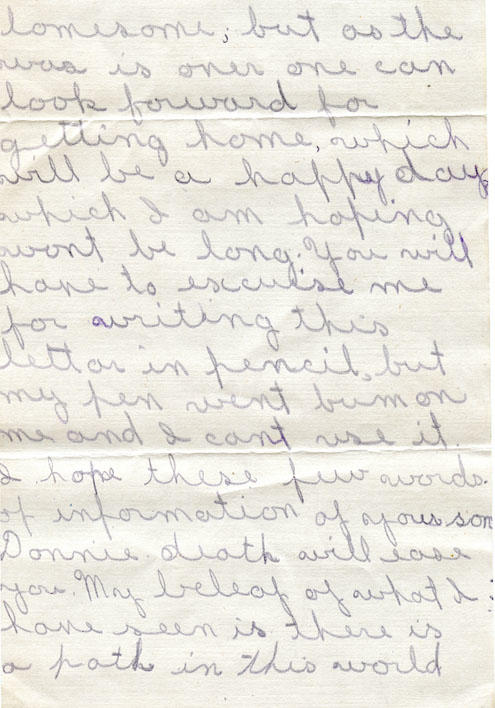 lonesome, but as the
war is over one can
look forward for
getting home, which
will be a happy day
which I am hoping
wont be long. You will
have to escuise me
for writing this
lettar in pencil, but
my pen went bum on
me and I cant use it.
I hope these few words.
of information of yous son
Donnie death will ease
you. My beleaf of what I
have seen is there is
a path in this world